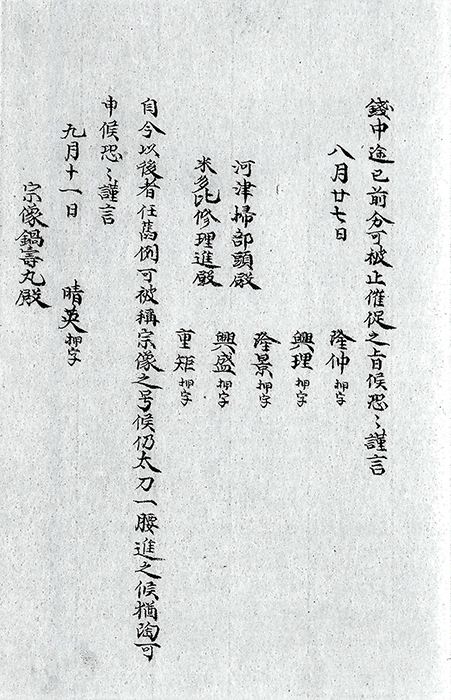 錢中途已前分可被止催促之旨候恐〻謹言
八月廿七日
隆仲押字
興理押字
隆景押字
興盛押字
重矩押字
河津掃部頭殿
米多比修理進殿
自今以後者任舊例可被稱宗像之号候仍太刀一腰進之候猶陶可
申候恐〻謹言
九月十一日
晴英押字
宗像鍋壽丸殿